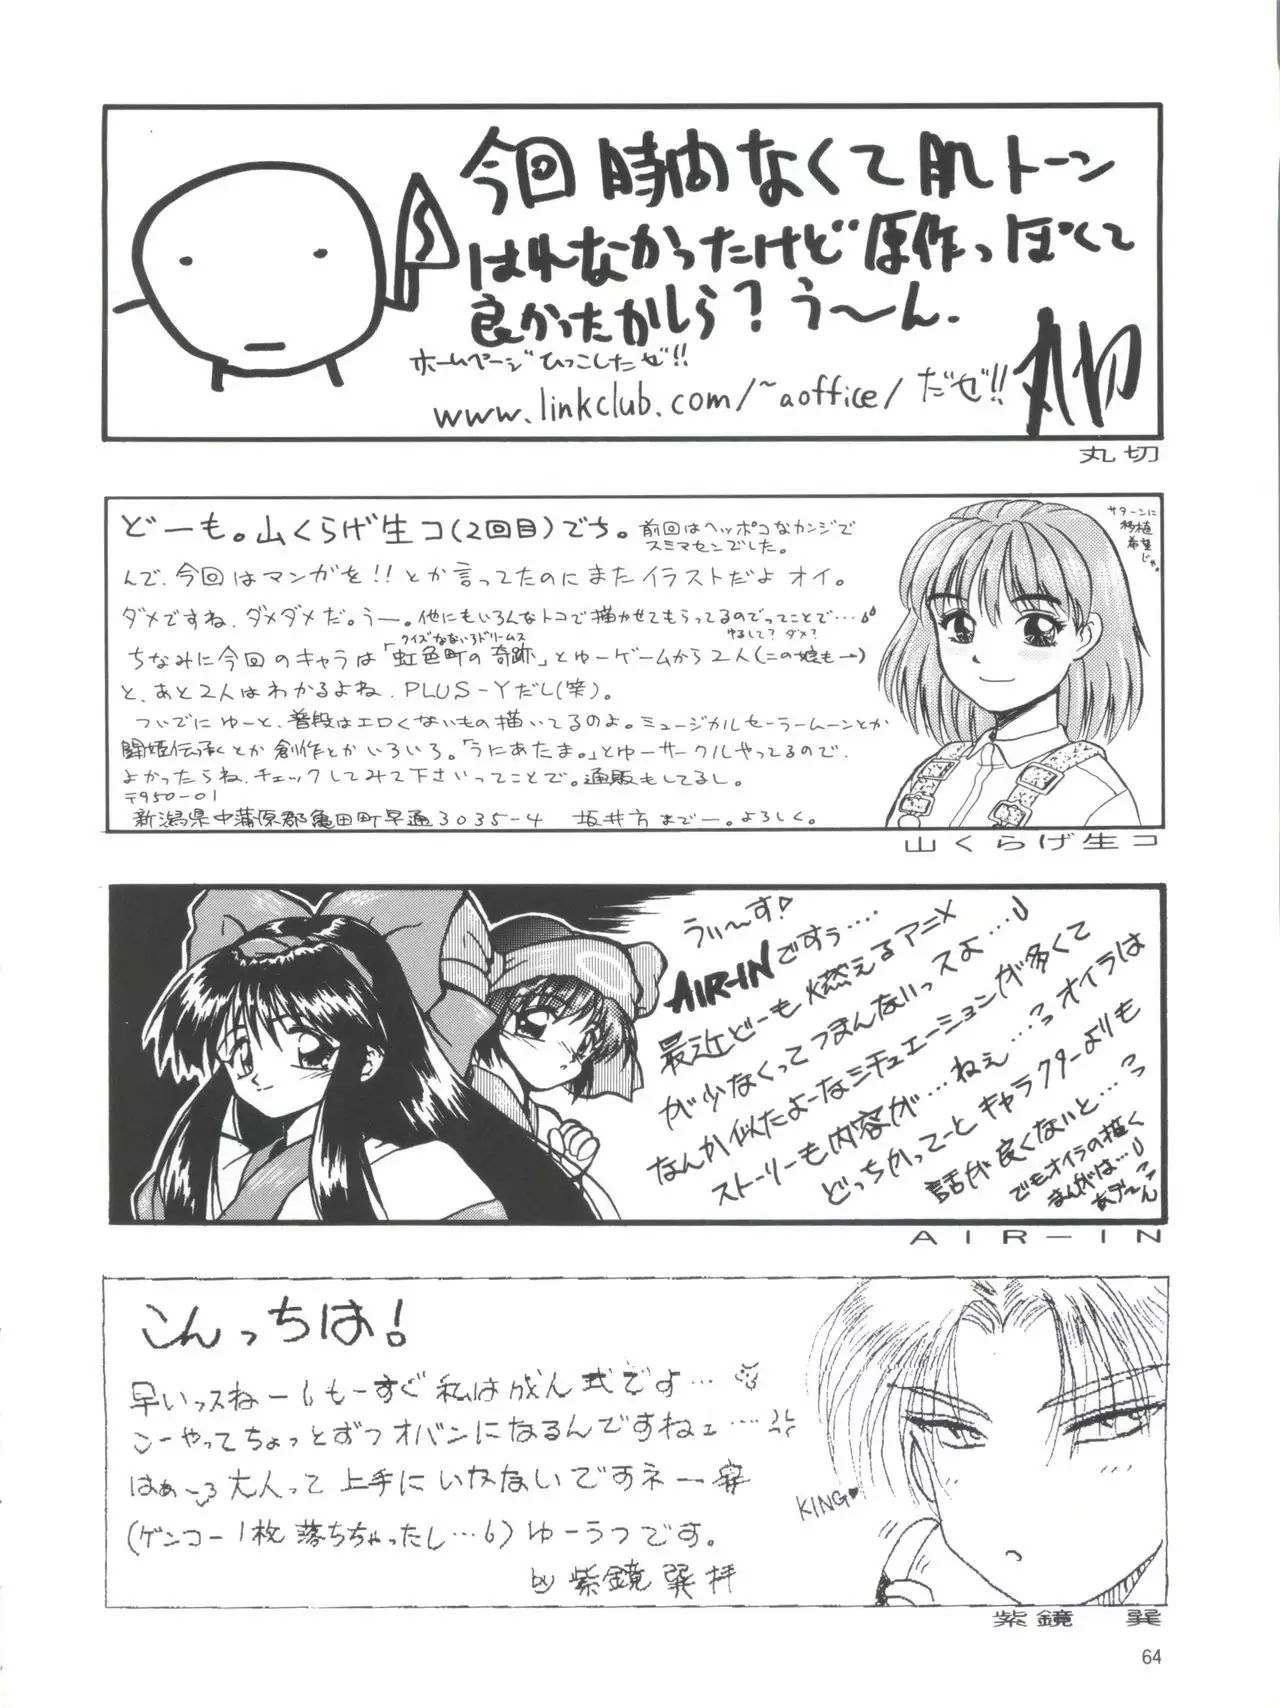 今回時間なくて肌トーン
はれなかったけど原作っぽくて
良かったかしら?う〜ん.
ホームページひっこしたぜ!!
www.linkclub.com/~aoffice/だぜ!!
丸切
丸切
どーも。山くらげ生コ(2回目)でち。前回はヘッポコなカンジで
スミマセンでした。
んで、今回はマンガを!!とか言ってたのにまたイラストだよオイ。
ダメですね、ダメダメだ。うー。他にもいろんなトコで描かせてもらってるのでってことで…
ゆるして?ダメ?
クイズなないろドリームス
ちなみに今回のキャラは「虹色町の奇跡」とゆーゲームから2人(この娘も→)
と、あと2人はわかるよね、PLUS-Yだし(笑)。
ついでにゆーと、普段はエロくないもの描いてるのよ。ミュージカルセーラームーンとか
闘姫伝承とか創作とかいろいろ。「うにあたま。」とゆーサークルやってるので、
よかったらね、チェックしてみて下さいってことで。通販もしてるし。
〒950-01
新潟県中蒲原郡亀田町早通3035-4 坂井方までー。よろしく。
サターンに
移植
希望
じゃ。
山くらげ生コ
うぃ〜す!
AIR-INですぅ…
最近どーも燃えるアニメ
が少なくってつまんないっスよ…
なんか似たよーなシチュエーションが多くて
ストーリーも内容が…ねぇ…っオイラは
どっちかってーとキャラクターよりも
話が良くないと…っ
でもオイラの描く
まんがは…
あぅ〜ん
AIR-IN
こんっちは!
早いっスねーもーすぐ私は成人式です…
こーやってちょっとずつオバンになるんですねェ…
はぁ〜大人って上手にいかないですネー
(ゲンコー1枚落ちちゃったし…)ゆーうつです。
by 紫鏡 巽 拝
KING♥
紫鏡 巽
64